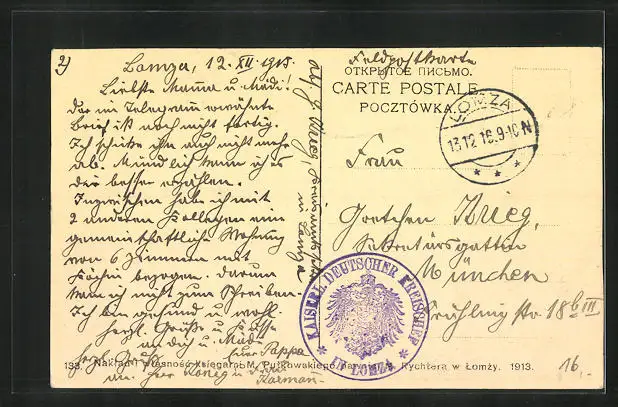 2)
Lomza, 12. XII. 1915.
Liebste Mama u. Mädi!
Der im Telegramm erwähnte
Brief ist noch nicht fertig.
Ich schicke ihn auch nicht mehr
ab. Mündlich kann ich es
Dir besser erzählen.
Inzwischen habe ich mit
2 anderen Kollegen eine
gemeinschaftliche Wohnung
von 6 Zimmern mit
Küchin bezogen. Darum
kam ich nicht zum Schreiben.
Ich bin gesund u. wohl.
Herzl. Grüße u. Küsse
an dich u. Mädi
Euer Pappa
Herzl. Grüße
an Herr König u. Frau
Abs. J. Krieg,
in Lomza
Feldpostkarte
ОТКРЫТОЕ ПИСЬМО.
CARTE POSTALE
POCZTÓWKA.
ŁOMŻA
13.12.15.9-10 N
Frau
Gretchen Krieg,
Sekretärsgattin
München
Frühling Str 18 b III
KAISERL. DEUTSCHER KREISCHEF
IN LOMZA
133. Nakład i własność Księgarni M. Putkowskiego Rychtera w Łomży. 1913.
16,-